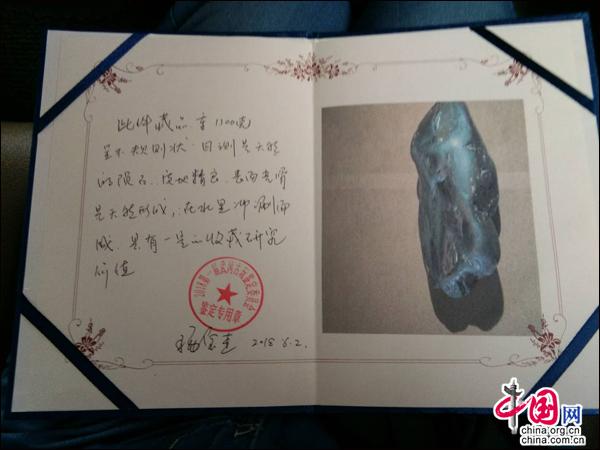 此件藏品重1100克
呈不规则状。目测是天然
的陨石、质地精密、表面光滑
是天然形成，在水里冲刷而
成。具有一定的收藏研究
价值
鉴定专用章
2018.6.2.
中国网
china.org.cn
china.com.cn